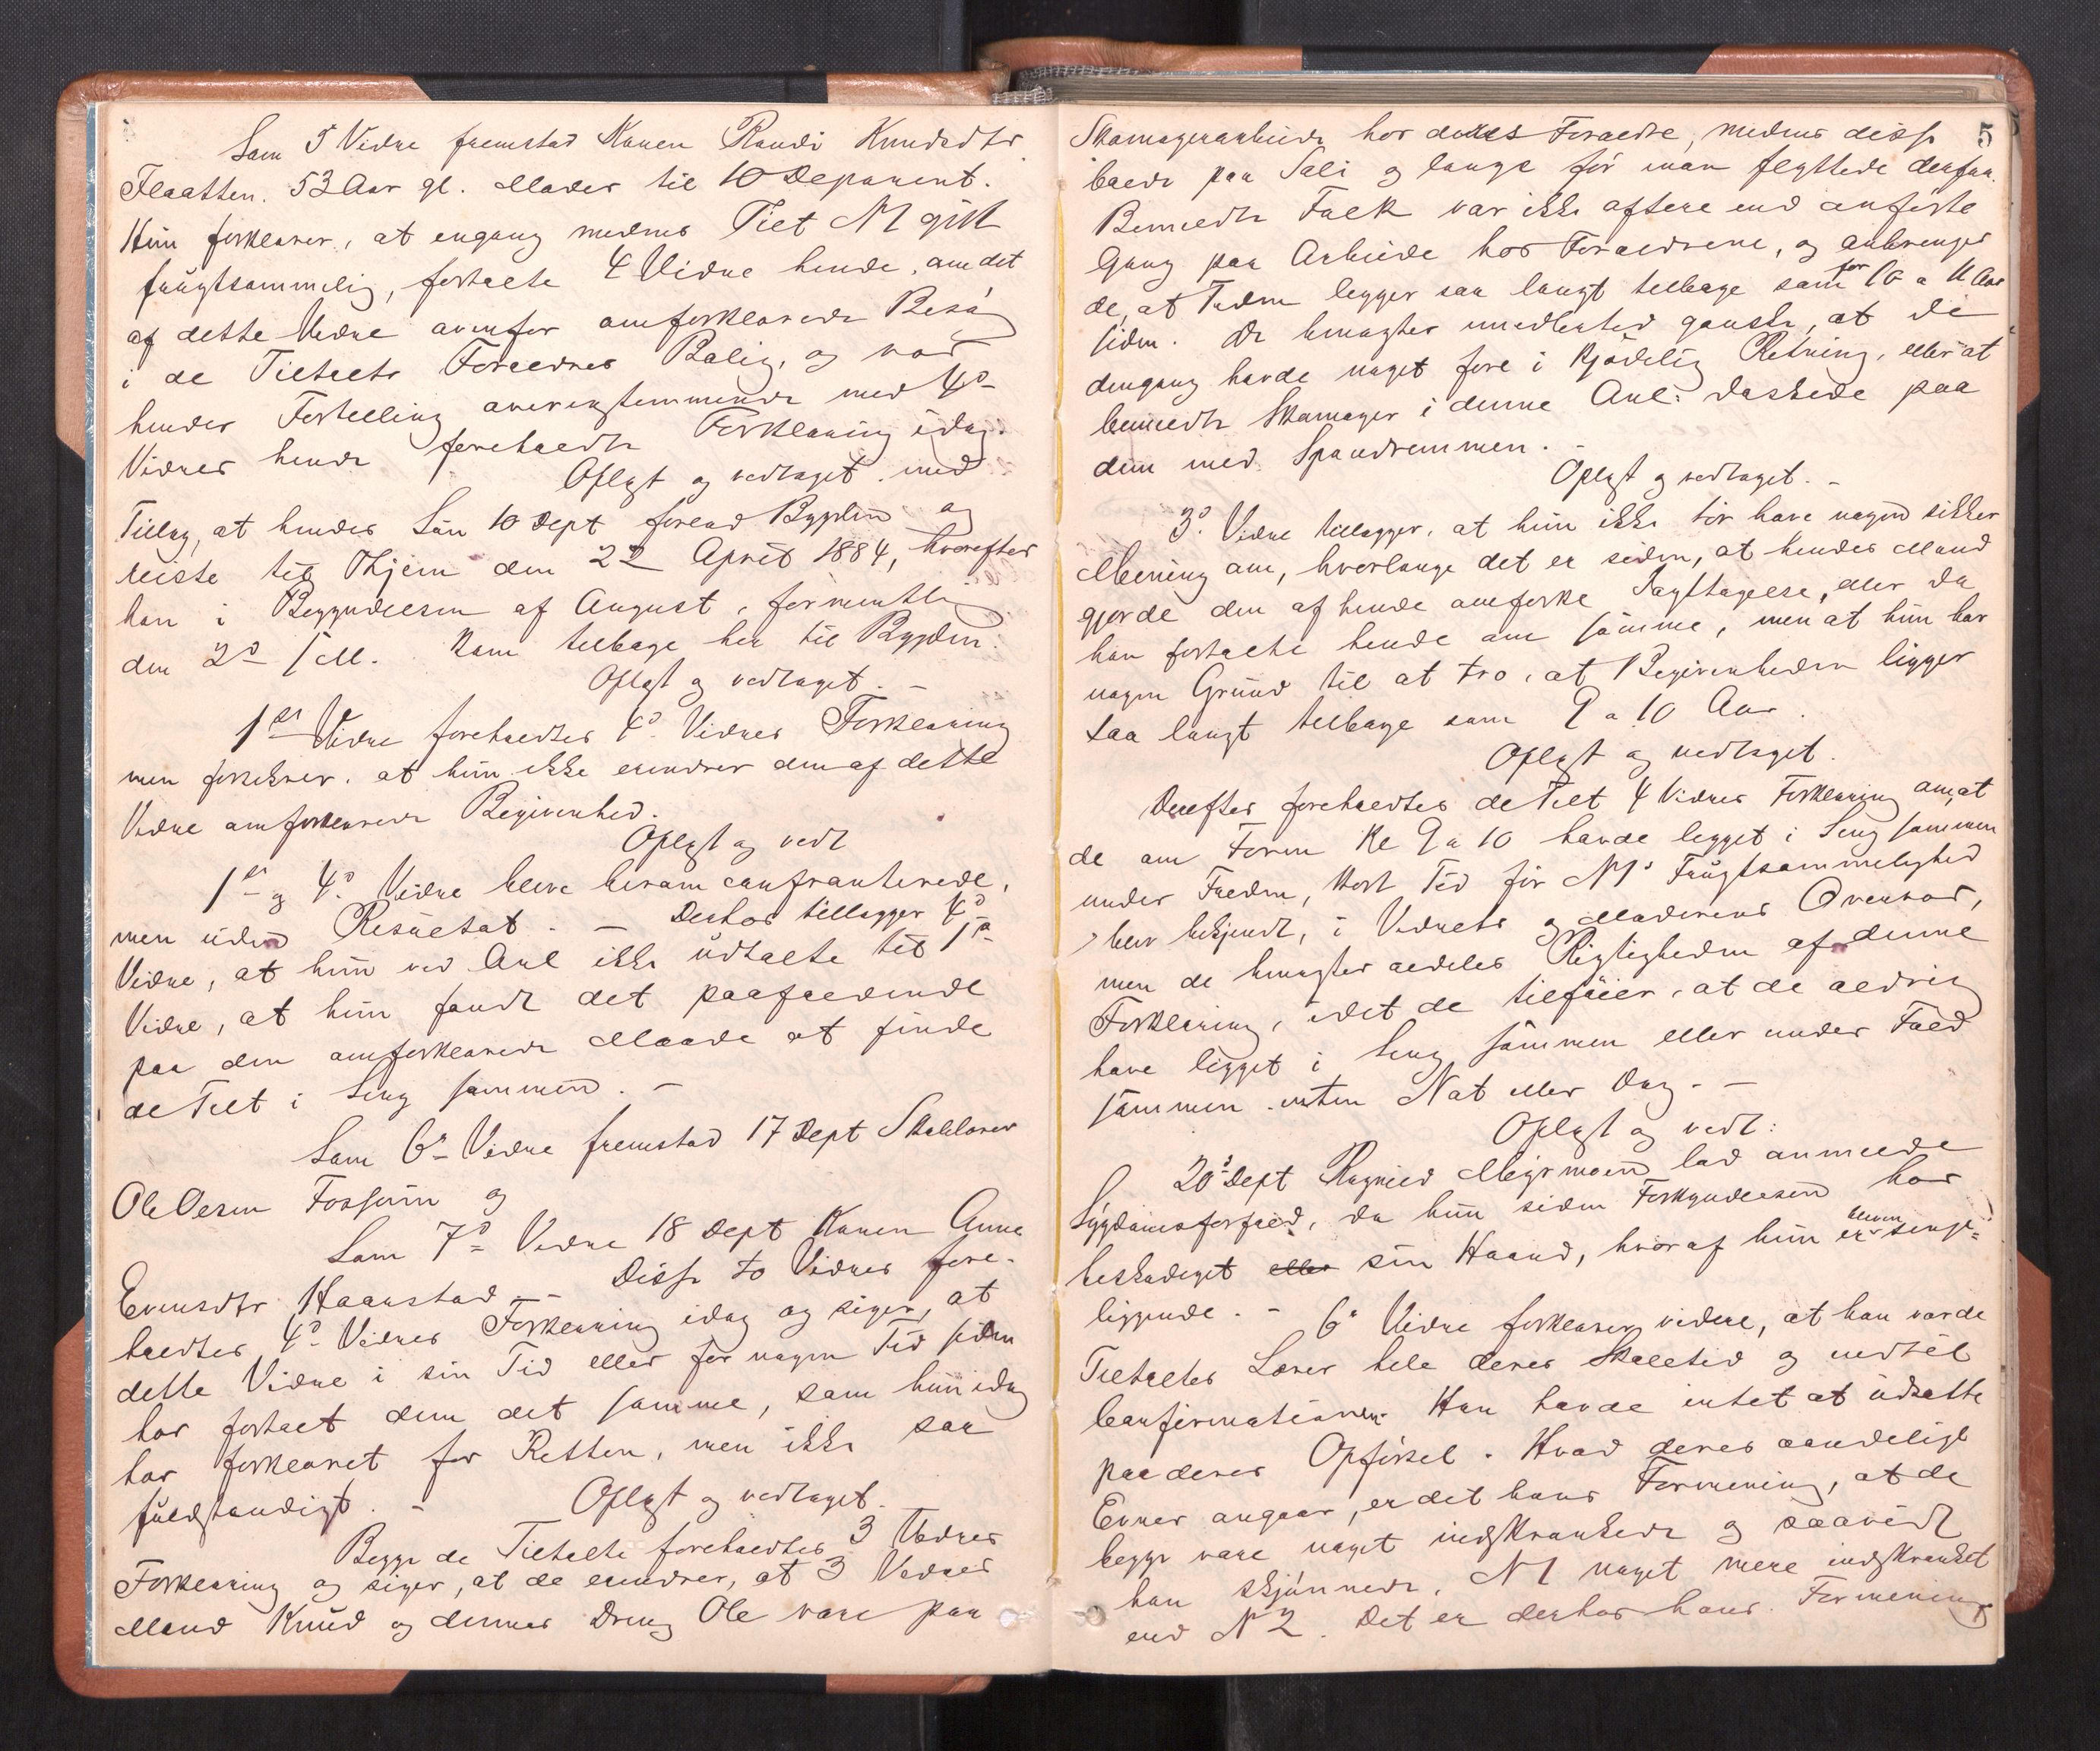 Som 5 Vidne fremstod Konen Randi Knudsdtr
Flaatten. 53 Aar gl. Moder til 10 Deponent.
Hun forklarer, at engang medens Tilt N1 gik
frugtsommelig, fortalte 4 Vidne hende, om det
af dette Vidne ovenfor omforklarede Besøg
i de Tiltalte Forældres Bolig, og var
hendes Fortelling overensstemmende med 4de
Vidnes hende foreholdte Forklaring idag.
Oplæst og vedtaget med
Tillæg, at hendes Søn 10 Dept forlod Bygden og
reiste til Thjem den 22 April 1884, hvorefter
han i Begyndelsen af August, formentlig
den 2den s M. kom tilbage her til Bygden.
Oplæst og vedtaget. -
1ste Vidne foreholdtes 4de Vidnes Forklaring
men forsikrer, at hun ikke erindrer den af dette
Vidne omforklarede Begivenhed.
Oplæst og vedt
1ste og 4de Vidne bleve herom confronterede,
men uden Resultat. - Derhos tillægger 4de
Vidne, at hun ved Anl ikke udtalte til 1ste
Vidne, at hun fandt det paafaldende
paa den omforklarede Maade at finde
de Tilt i Seng sammen. -
Som 6te Vidne fremstod 17 Dept Skolelærer
Ole Olsen Fossum og
Som 7de Vidne 18 Dept Konen Anne
Evensdtr Haanstad - Disse to Vidner fore-
holdtes 4de Vidnes Forklaring idag og siger, at
dette Vidne i sin Tid eller for nogen Tid siden
har fortalt dem det samme, som hun idag
har forklaret for Retten, men ikke saa
fuldstændigt. - Oplæst og vedtaget.
Begge de Tiltalte foreholdtes 3 Vidnes
Forklaring og siger, at de erindrer, at 3 Vidnes
Mand Knud og dennes Dreng Ole vare paa
5
Skomagerarbeide hos deres Forældre, medens disse
boede paa Sali og længe før man flyttede derfra.
Bemeldte Folk var ikke oftere end anførte
Gang paa Arbeide hos Forældrene, og anbringer
de, at Tiden ligger saa langt tilbage som for 10 a 11 Aar
siden. De benægter imidlertid ganske, at de
dengang havde noget fore i kjødelig Retning, eller at
bemeldte Skomager i denne Anl: daskede paa
dem med Spandremmen. -
Oplæst og vedtaget. -
3de Vidne tillægger, at hun ikke tør have nogen sikker
Mening om, hvorlænge det er siden, at hendes Mand
gjorde den af hende omforkl Iagttagelse, eller da
han fortalte hende om samme, men at hun har
nogen Grund til at tro, at Begivenheden ligger
saa langt tilbage som 9 a 10 Aar.
Oplæst og vedtaget.
Derefter foreholdtes de Tilt 4 Vidnes Forklaring om, at
de om Form Kl 9 a 10 havde ligget i Seng sammen
under Fælden, kort Tid før N1s Frugtsommelighed
blev bekjendt, i Vidnets og Moderens Overvær,
men de benægter aldeles Rigtigheden af denne
Forklaring, idet de tilføier, at de aldrig
have ligget i Seng sammen eller under Fæld
sammen enten Nat eller Dag. -
Oplæst og vedt:
20de Dept Ragnild Meyrmoen lod anmelde
Sygdomsforfald, da hun siden Forkyndelsen har
beskadiget eller sin Haand, hvoraf hun er bleven senge-
liggende. - 6te Vidne forklarer videre, at han var de
Tiltaltes Lærer hele deres Skoletid og indtil
Confirmationen. Han havde intet at udsætte
paa deres Opførsel. Hvad deres aandelige
Evner angaar, er det hans Formening, at de
begge vare noget indskrænkede og saavidt
han skjønnede, N1 noget mere indskrænket
end N 2. Det er derhos hans Formening